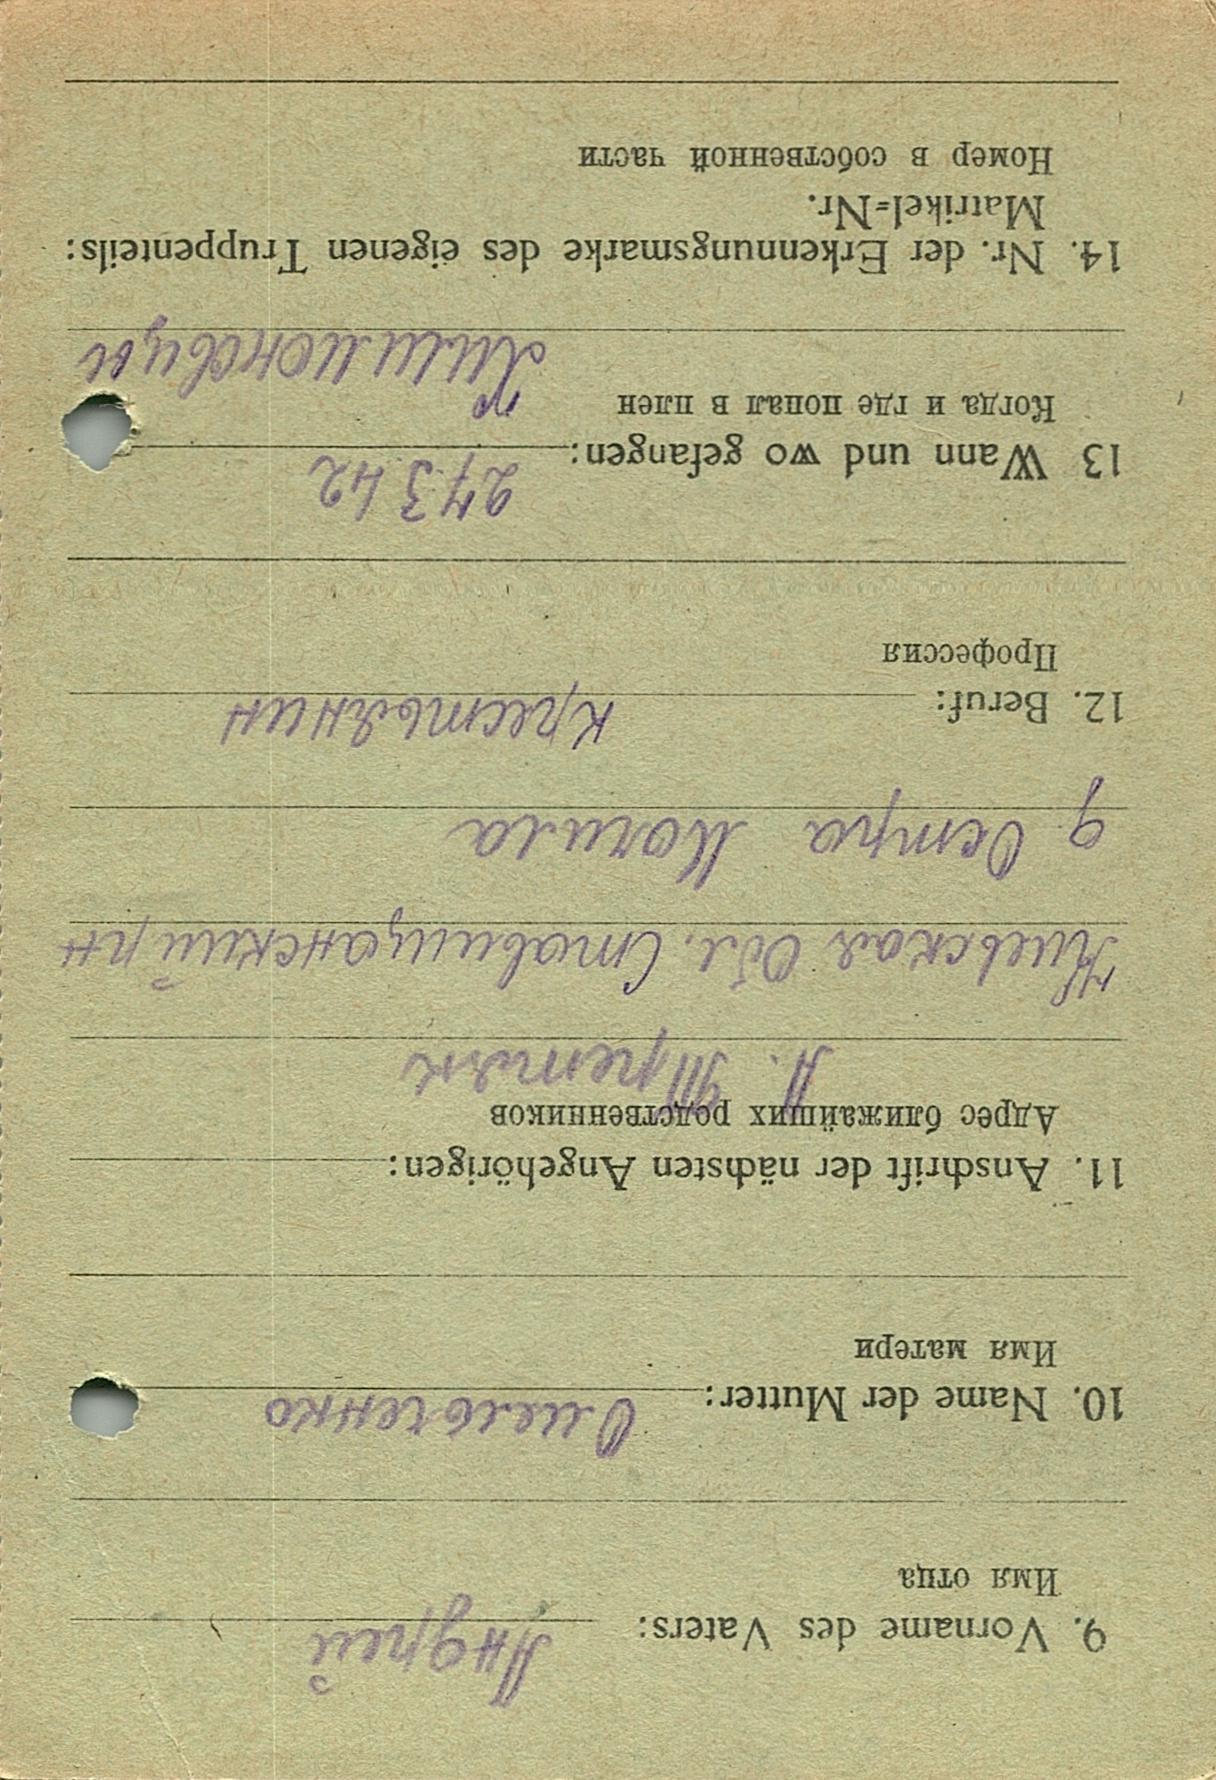 9. Vorname des Vaters: Андрей
Имя отца
10. Name der Mutter: Омельченко
Имя матери
11. Anschrift der nächsten Angehörigen:
Адрес ближайших родственников
А. Третяк
Киевская Обл. Ставищанский рн
д Остра Могила
12. Beruf: крестьянин
Профессия
13 Wann und wo gefangen: 27 3 42
Когда и где попал в плен
14. Nr. der Erkennungsmarke des eigenen Truppenteils:
Matrikel=Nr.
Номер в собственной части